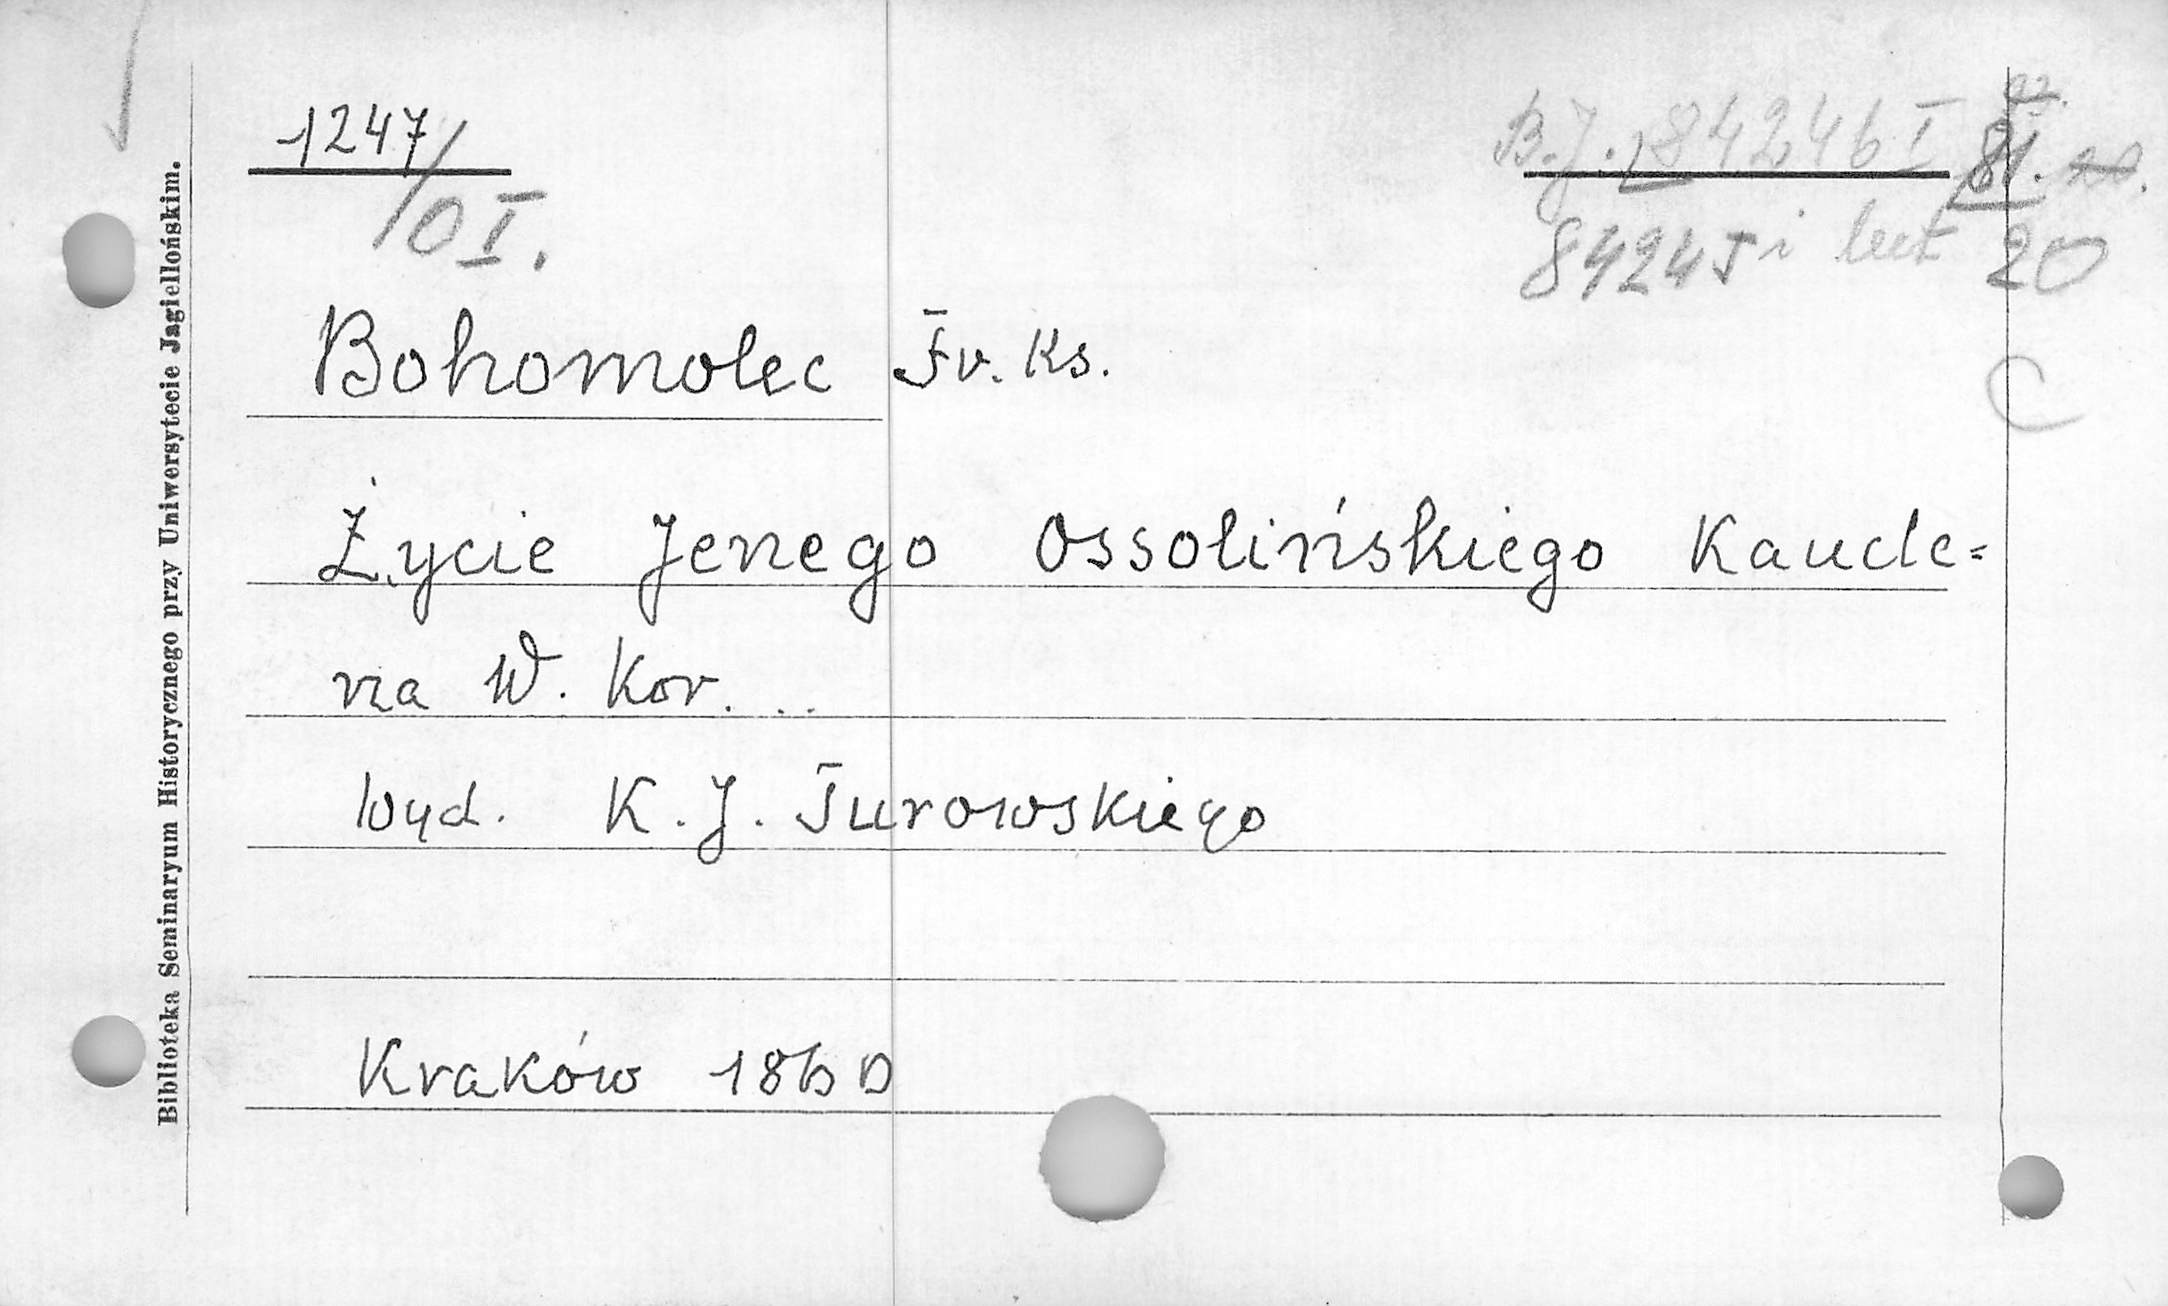 1247/OI.
B.J. 184246 I 81.
84245 i lect 20
C
Bohomolec Fr. Ks.
Życie Jerzego Ossolińskiego Kancle=
rza W. Kor. ...
wyd. K. J. Turowskiego
Kraków 1860
Biblioteka Seminaryum Historycznego przy Uniwersytecie Jagiellońskim.